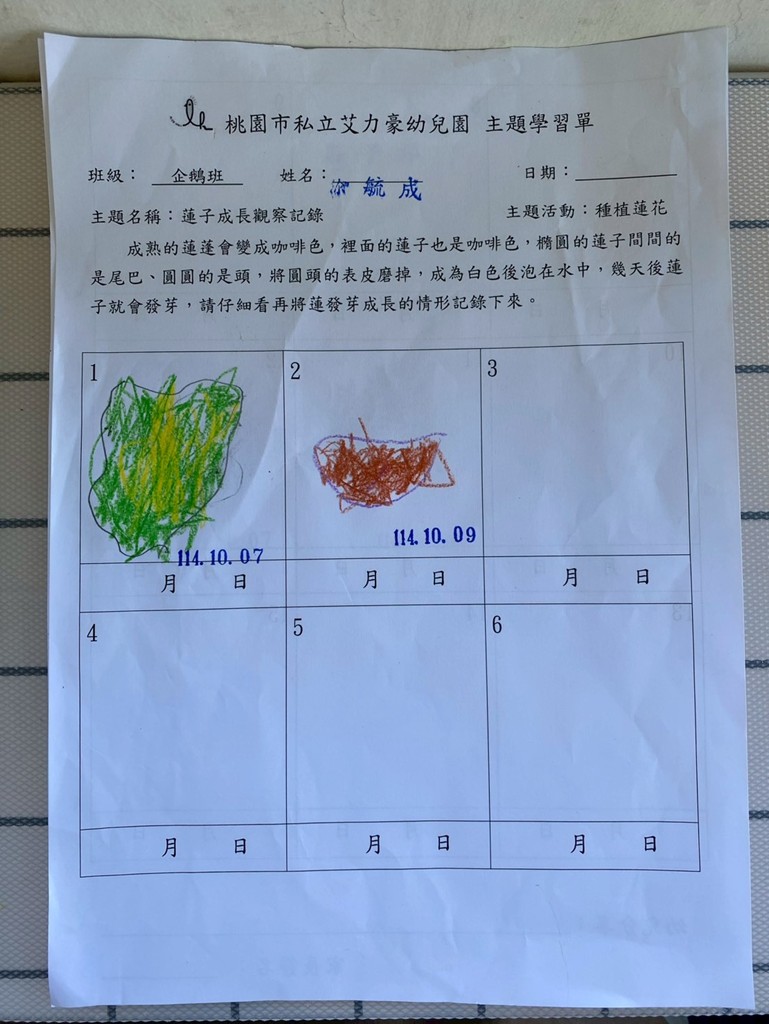 桃園市私立艾力豪幼兒園 主題學習單
班級： 企鵝班 姓名： 毓成 日期：
主題名稱：蓮子成長觀察記錄 主題活動：種植蓮花
成熟的蓮蓬會變成咖啡色，裡面的蓮子也是咖啡色，橢圓的蓮子間間的
是尾巴、圓圓的是頭，將圓頭的表皮磨掉，成為白色後泡在水中，幾天後蓮
子就會發芽，請仔細看再將蓮發芽成長的情形記錄下來。
1 2 3
114.10.07 114.10.09
月 日 月 日 月 日
4 5 6
月 日 月 日 月 日